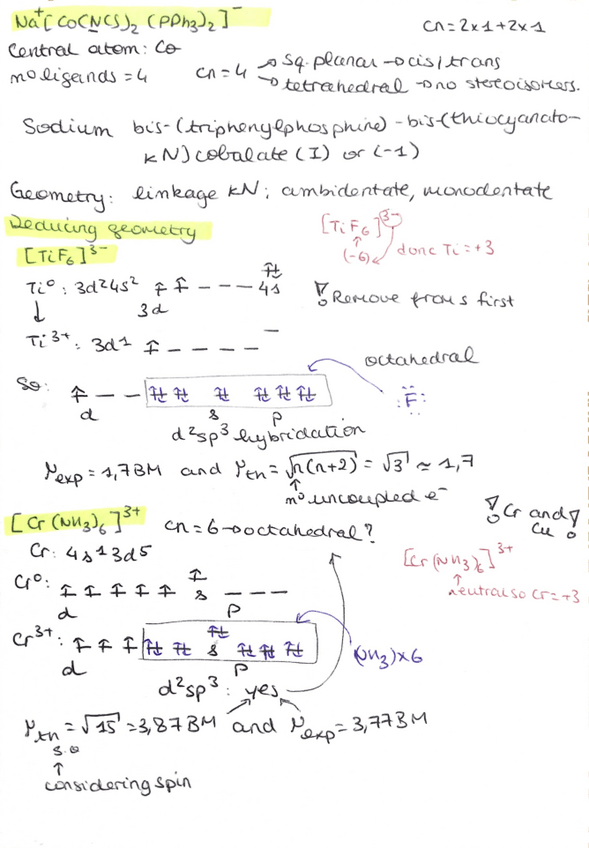 Na⁺[Co(NCS)₂ (PPh₃)₂]⁻
cn = 2x1+2x1
Central atom: Co
nº ligands = 4
cn = 4 → sq. planar → cis/trans
→ tetrahedral → no stereoisomers.
Sodium bis-(triphenylphosphine)-bis-(thiocyanato-
κN) cobalate (I) or (-1)
Geometry: linkage κN; ambidentate, monodentate
Deducing geometry
[TiF₆]³⁻
[TiF₆]³⁻
(-6) donc Ti = +3
Ti⁰: 3d²4s² ↑ ↑ _ _ _ ⇅
3d 4s
! Remove from s first
↓
Ti³⁺: 3d1 ↑ _ _ _ _ _
octahedral
So: ↑ _ _ ⇅ ⇅ ⇅ ⇅ ⇅ ⇅
:F:
d s p
d²sp³ hybridation
μexp = 1,7 BM and μth = √n(n+2) = √3 ≈ 1,7
nº uncoupled e⁻
[Cr(NH₃)₆]³⁺ cn = 6 → octahedral?
! Cr and !
Cu
Cr: 4s1 3d5
[Cr(NH₃)₆]³⁺
neutral so Cr = +3
Cr⁰: ↑ ↑ ↑ ↑ ↑ ↑ _ _ _
d s p
Cr³⁺: ↑ ↑ ↑ ⇅ ⇅ ⇅ ⇅ ⇅ ⇅
(NH₃)x6
d s p
d²sp³: yes
μth = √15 = 3,87 BM and μexp = 3,77 BM
s.o
↑
considering spin